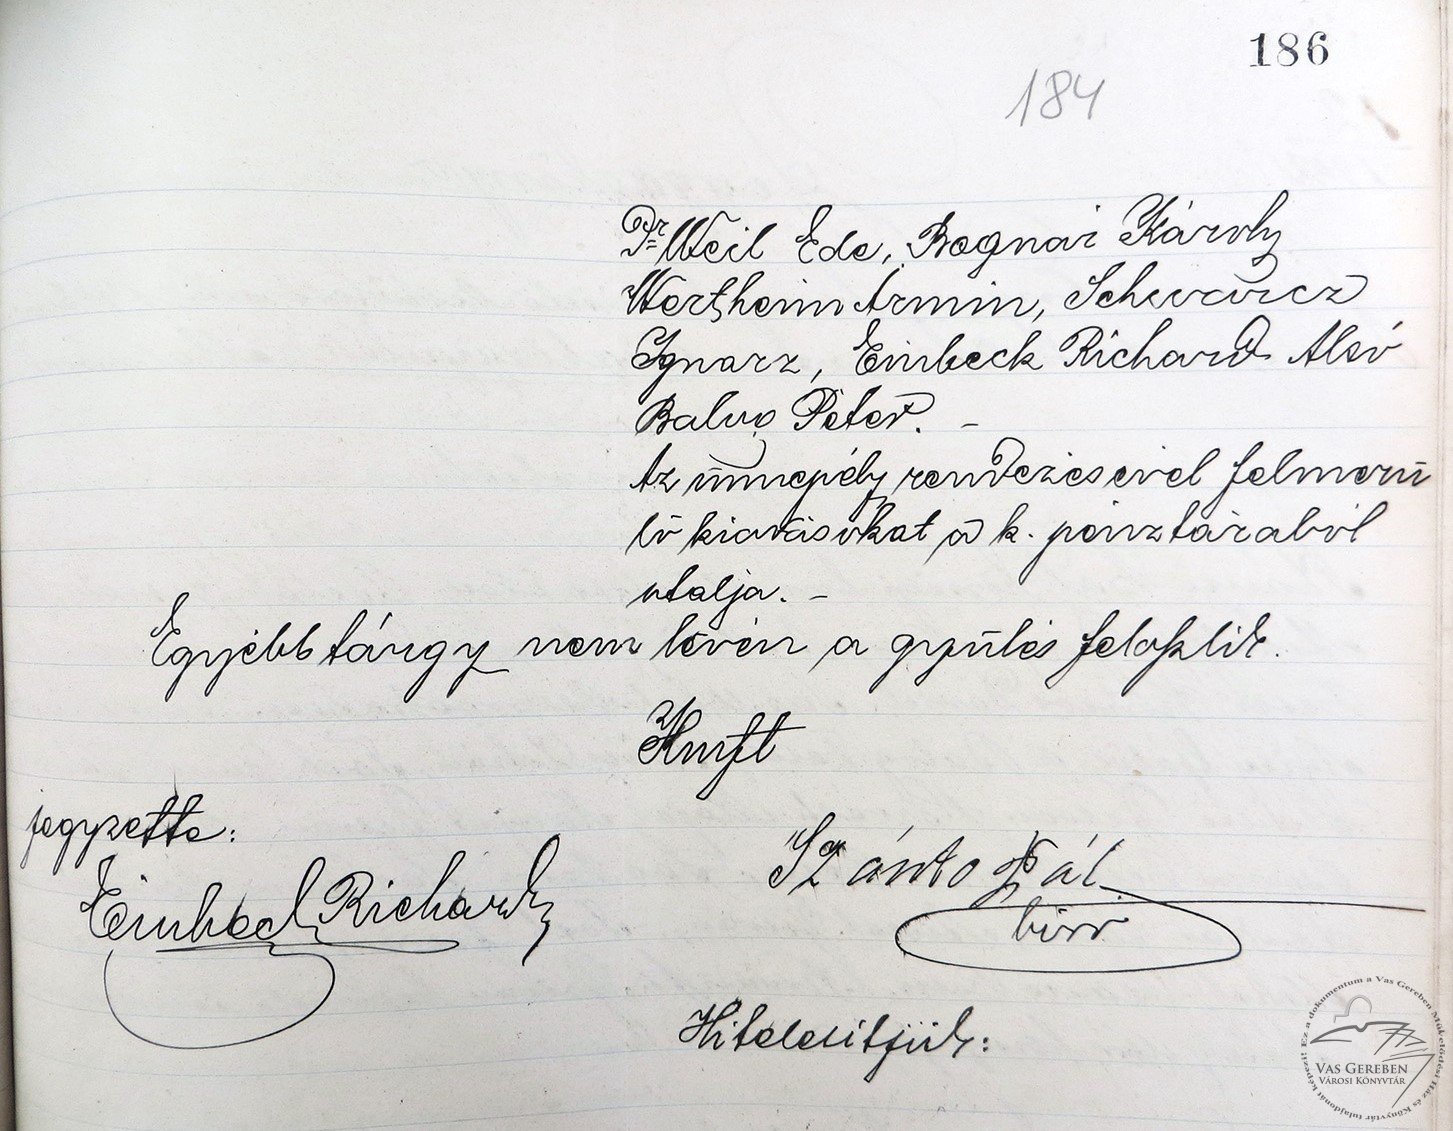 186
184
Dr Weil Ede, Bognár Károly
Wertheim Ármin, Schwarcz
Ignarz, Einbeck Richard Alsó
Balog Péter. –
Az ünnepély rendezésével felmerü
lő kiadásokat a k. pénztárából
utalja. –
Egyébb tárgy nem lévén a gyülés feloszlik.
Kmft
jegyzette:
Einbeck Richard
Szántó Pál
biró
Hitelesitjük:
Ez a dokumentum a Vas Gereben Művelődési Ház és Könyvtár tulajdonát képezi!
VAS GEREBEN
VÁROSI KÖNYVTÁR